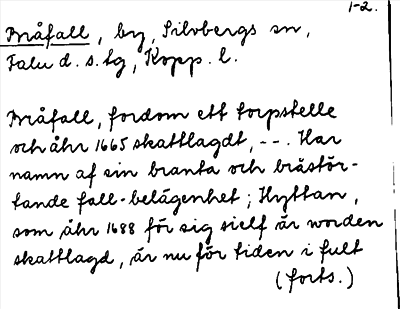 1-2.
Bråfall, by, Silvbergs sn,
Falu d. s. tg, Kopp. l.
Bråfall, fordom ett torpstelle
och åhr 1665 skattlagdt, --. Har
namn af sin branta och bråstör-
tande fall-belägenhet; Hyttan,
som åhr 1688 för sig sielf är worden
skattlagd, är nu för tiden i fult
(forts.)